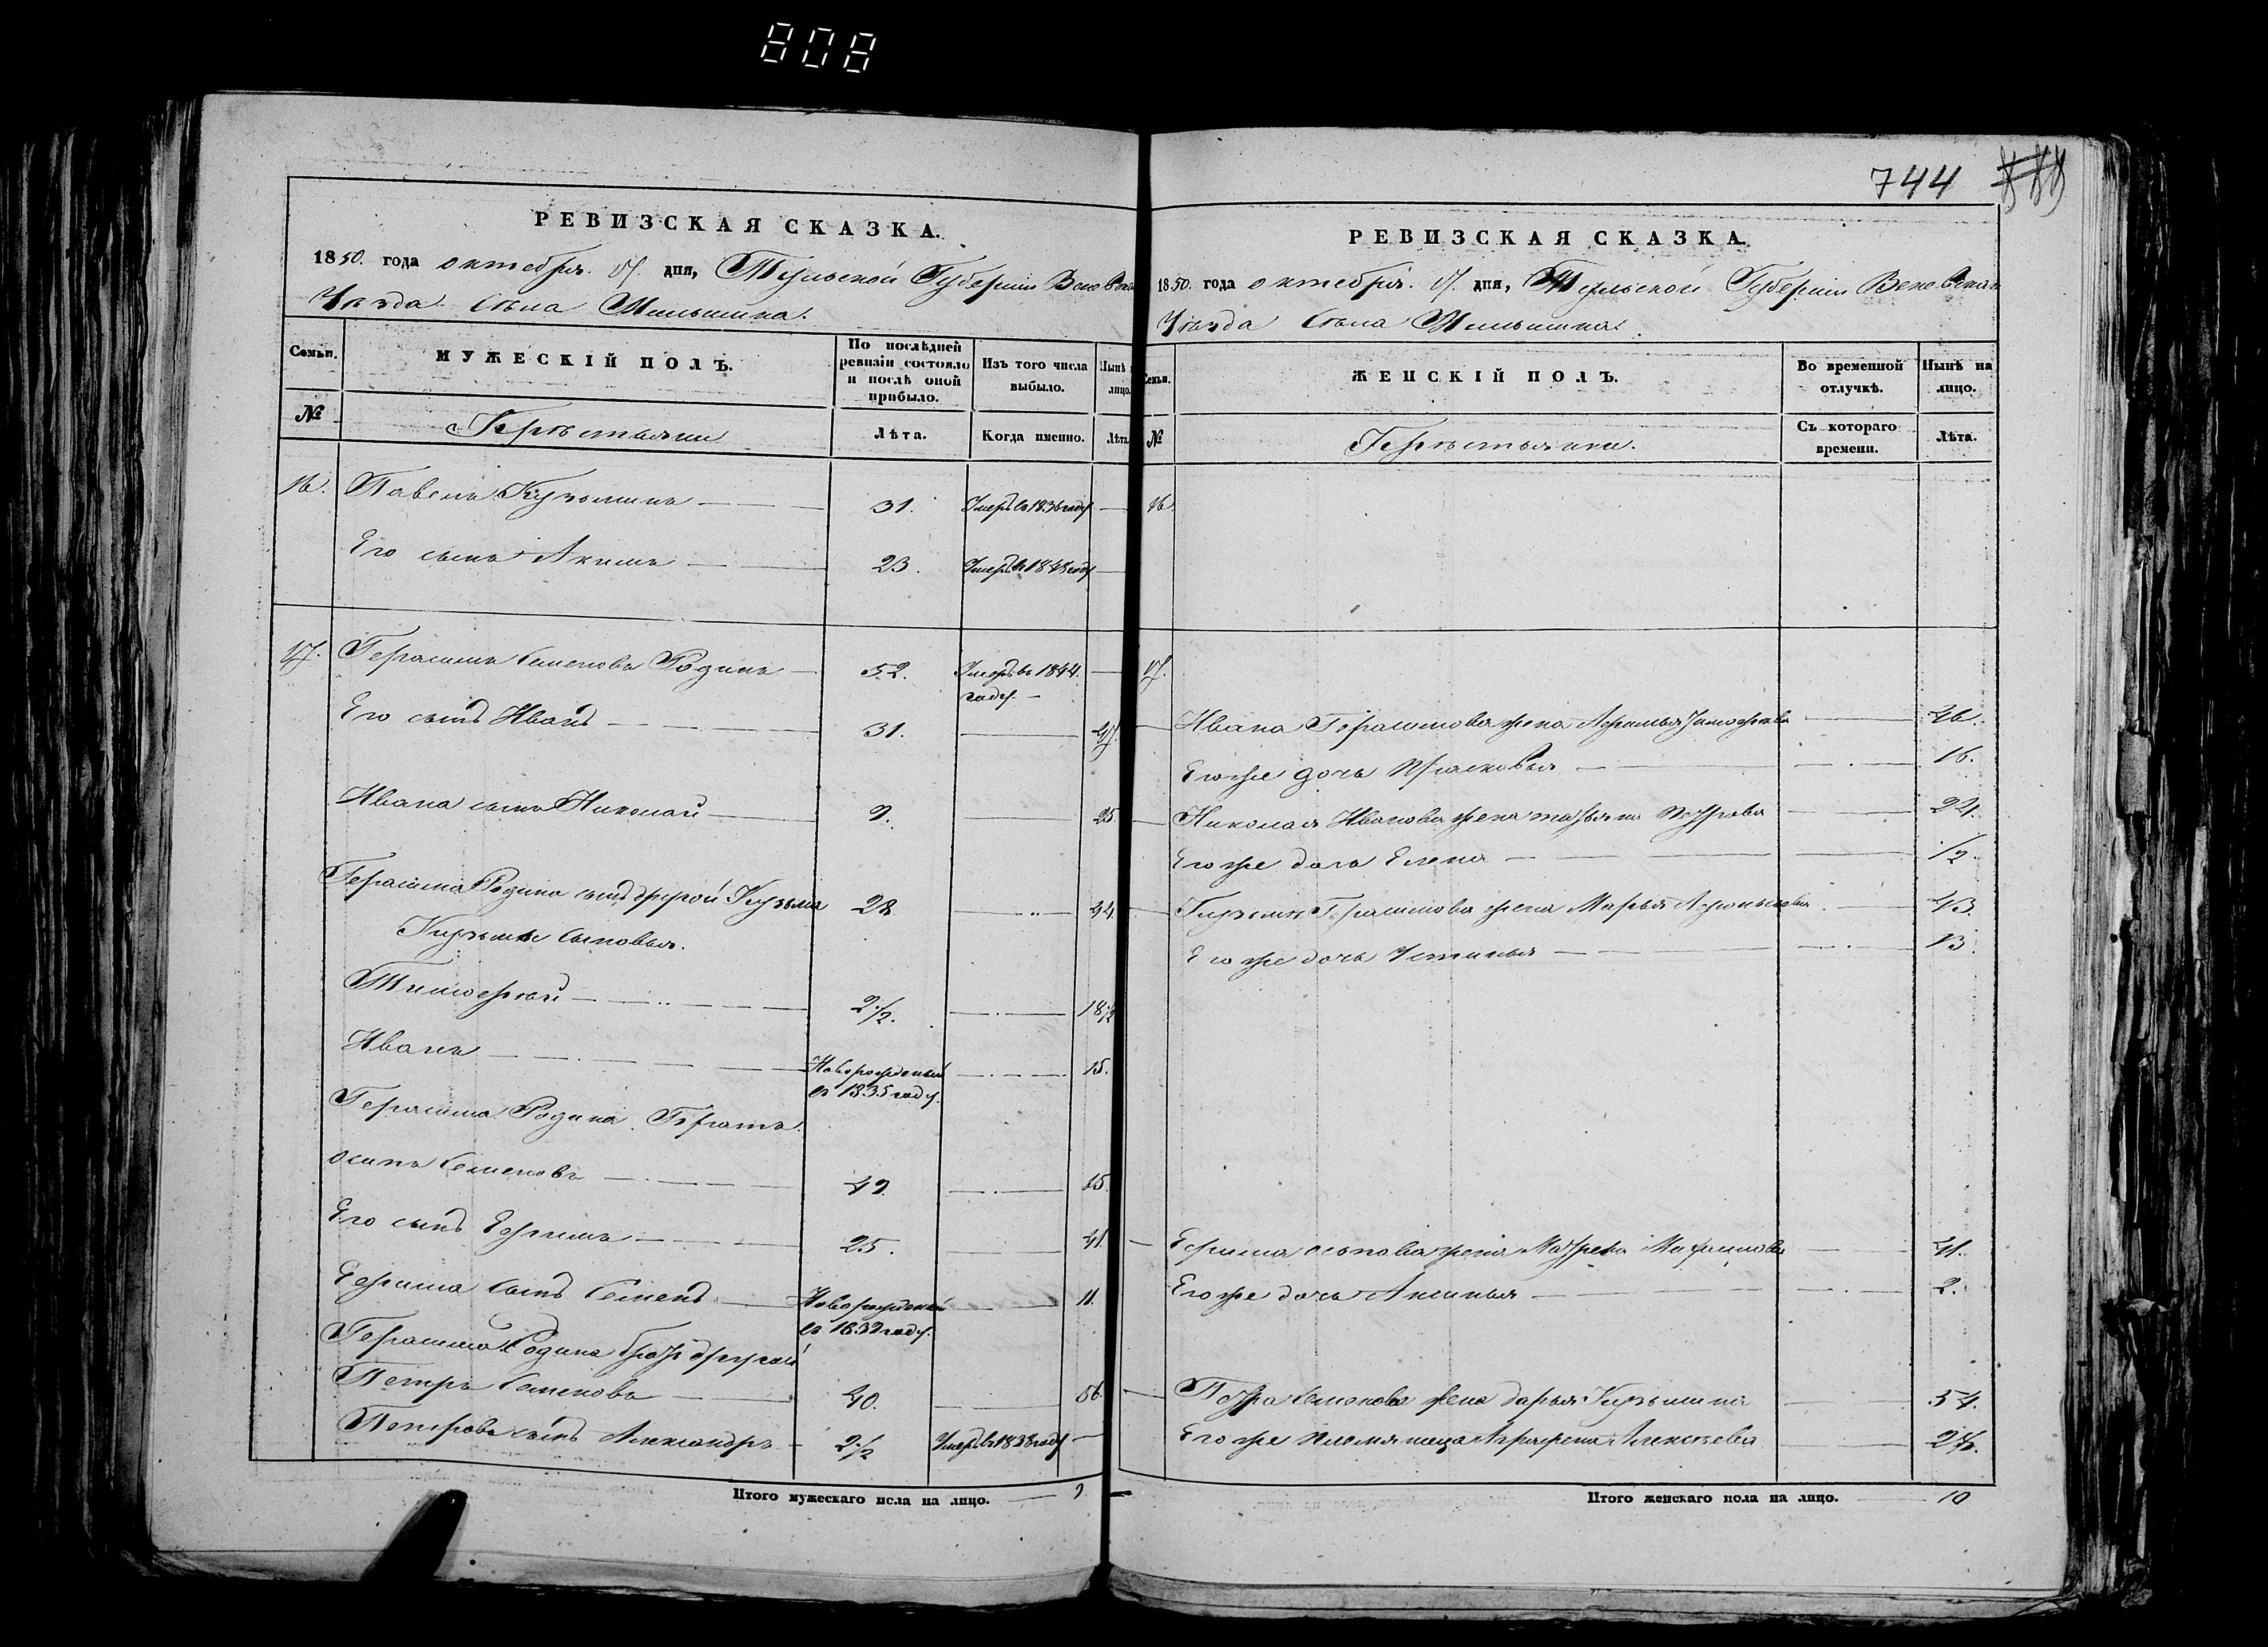 808
744
РЕВИЗСКАЯ СКАЗКА.
1850. года октября. 17. дня, Тульской Губернiи Веневскаго
Уѣзда Села Мильшина.
Семьи.
МУЖЕСКIЙ ПОЛЪ.
По послѣдней
ревизiи состояло
и послѣ оной
прибыло.
Изъ того числа
выбыло.
Нынѣ на
лицо.
№
Крестьяне
Лѣта.
Когда именно.
Лѣта.
16. Павелъ Кузьминъ 31. Умеръ въ 1836 году
Его сынъ Акимъ 23. Умеръ въ 1848 году
17. Герасимъ Семеновъ Родинъ 52. Умеръ въ 1844.
году.
Его сынъ Иванъ 31. 47.
Ивана сынъ Николай 9. 25
Герасима Родина сынъ другой Кузьма 28 44.
Кузьмы сыновья.
Тимофей 2 1/2. 18 1/2
Иванъ Новорожденный 15.
въ 1835 году.
Герасима Родина братъ
Осипъ Семеновъ 49. 65.
Его сынъ Ефимъ 25. 41.
Ефима сынъ Семенъ Новорожденный 11.
въ 1839 году.
Герасима Родина братъ другой
Петръ Семеновъ 40. 56.
Петровъ сынъ Александръ 2 1/2 Умеръ въ 1838 году
Итого мужескаго пола на лицо. 9
РЕВИЗСКАЯ СКАЗКА.
1850. года октября. 17. дня, Тульской Губернiи Веневскаго
Уѣзда Села Мильшина.
Семьи.
ЖЕНСКIЙ ПОЛЪ.
Во временной
отлучкѣ.
Нынѣ на
лицо.
№
Крестьянки.
Съ котораго
времени.
Лѣта.
16.
17.
Ивана Герасимова жена Афимья Тимофеева 46.
Его же дочь Прасковья 16.
Николая Иванова жена Татьяна Петрова 24.
Его же дочь Елена 1/2.
Кузьмы Герасимова жена Марья 43.
Его же дочь Устинья 13.
Ефима Осипова жена Матрена 41.
Его же дочь Аксинья 2.
Петра Семенова жена Дарья Кузьмина 54.
Его же племяница Аграфена Алексѣева
Итого женскаго пола на лицо. 10